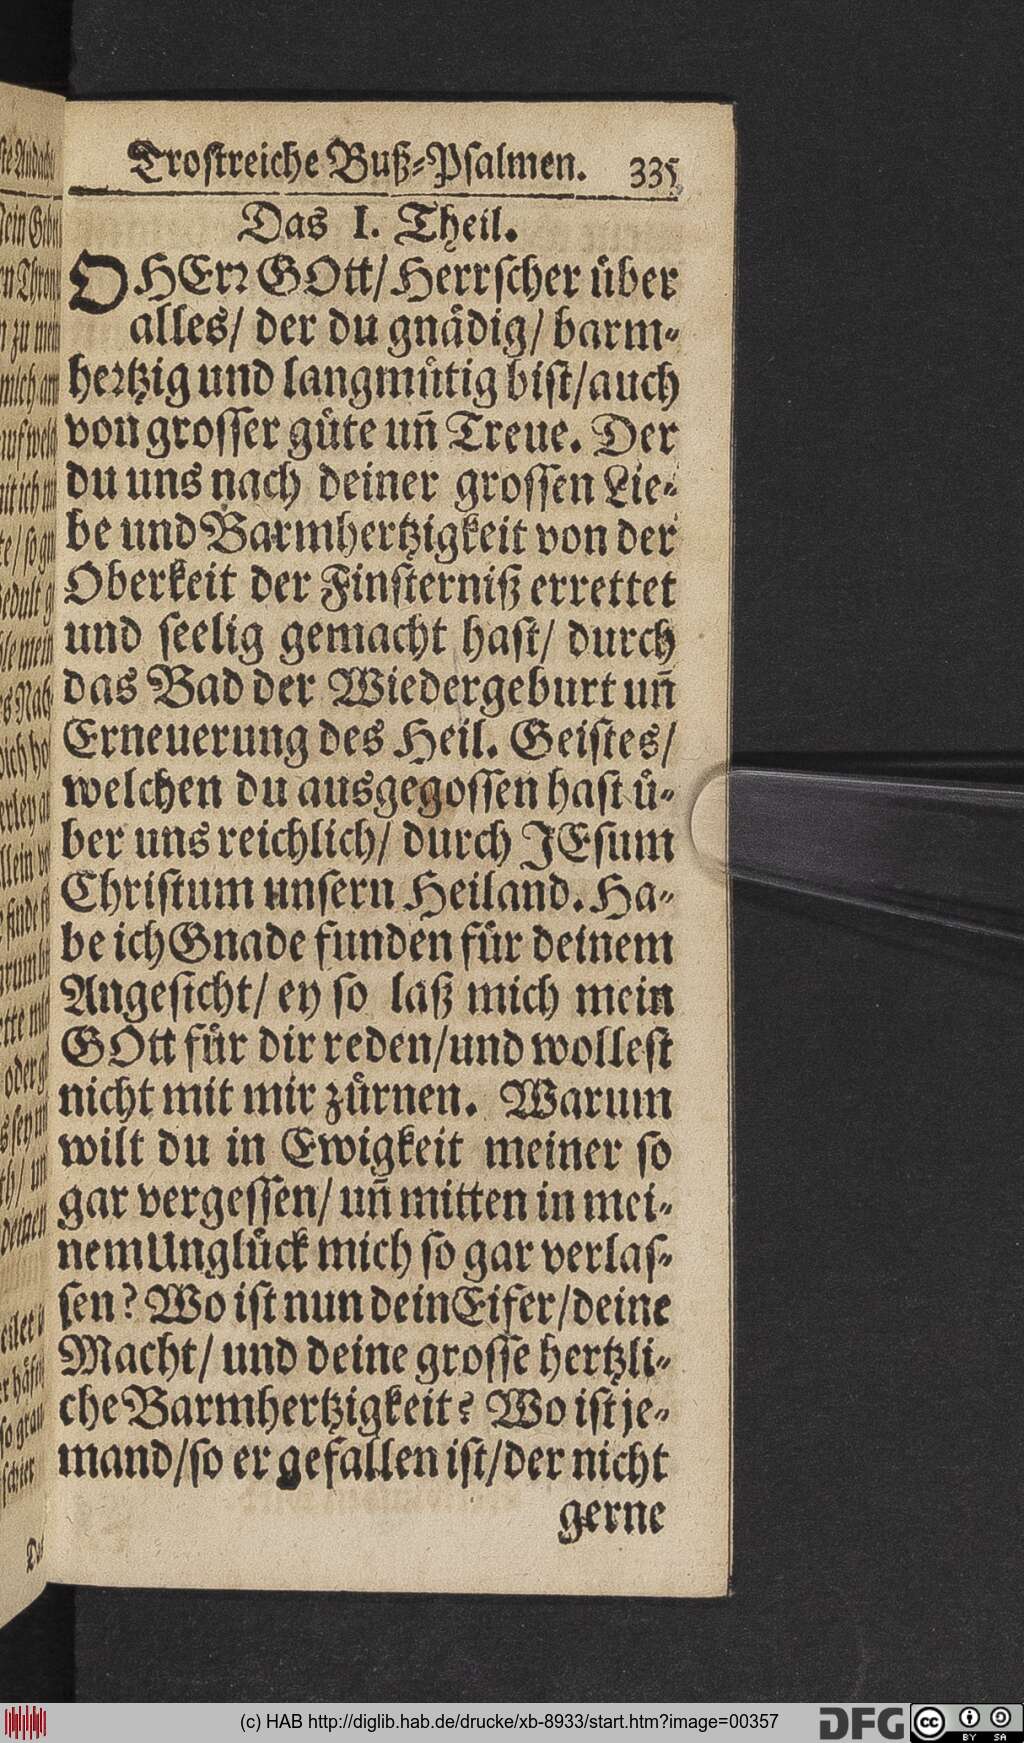 Troſtreiche Buß-Pſalmen. 335
Das I. Theil.
O HErꝛ GOtt/ Herrſcher uͤber
alles/ der du gnaͤdig/ barm-
heꝛtzig und langmuͤtig biſt/ auch
von groſſer guͤte uñ Treue. Der
du uns nach deiner groſſen Lie-
be und Barmhertzigkeit von der
Oberkeit der Finſterniß errettet
und ſeelig gemacht haſt/ durch
das Bad der Wiedergeburt uñ
Erneuerung des Heil. Geiſtes/
welchen du ausgegoſſen haſt uͤ-
ber uns reichlich/ durch JEſum
Chriſtum unſern Heiland. Ha-
be ich Gnade funden fuͤr deinem
Angeſicht/ ey ſo laß mich mein
GOtt fuͤr dir reden/ und wolleſt
nicht mit mir zuͤrnen. Warum
wilt du in Ewigkeit meiner ſo
gar vergeſſen/ uñ mitten in mei-
nem Ungluͤck mich ſo gar verlaſ-
ſen? Wo iſt nun dein Eifer/ deine
Macht/ und deine groſſe hertzli-
che Barmhertzigkeit? Wo iſt je-
mand/ ſo er gefallen iſt/ der nicht
gerne
(c) HAB http://diglib.hab.de/drucke/xb-8933/start.htm?image=00357
DFG
cc BY SA